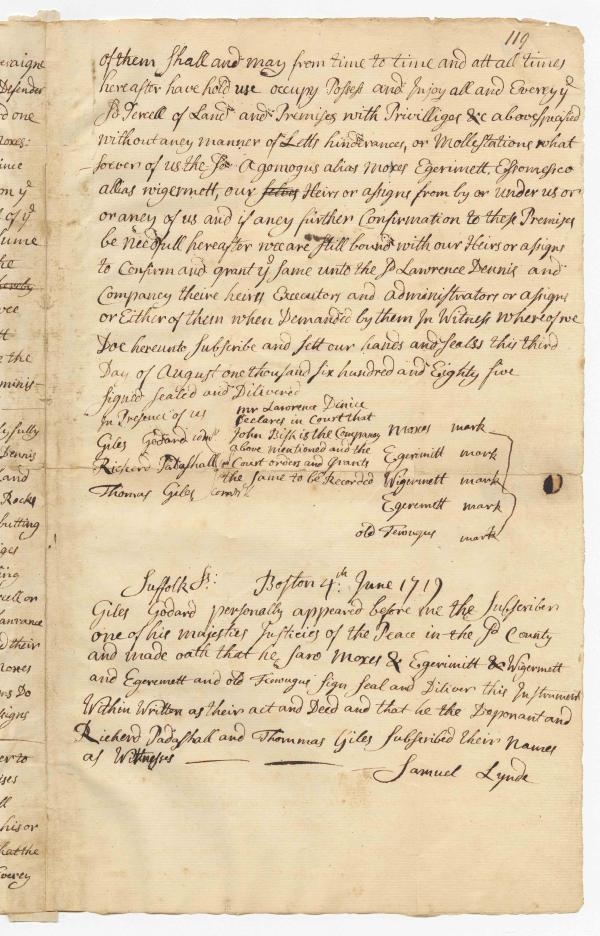 119
of them Shall and may from time to time and att all times
hereafter have hold use occupy Possess and Injoy all and Everey yͤ
Sᵈ Percell of Land and Premises with Privilliges &c above spesified
without aney manner of Letts hinderances, or Mollestations what
soever of us the Sᵈ Agomogus alias Moxes Egerimett, Esomesco
allias wigermett, our Heirs or assigns from by or under us or
or aney of us and if aney further Confirmation to these Premises
be Needfull hereafter wee are Still bound with our Heirs or assigns
to Confirm and grant yͤ Same unto the Sᵈ Lawrence Dennis and
Companey theire heirs Executors and administrators or assigns
or Either of them when Demanded by them In Witness Whereof we
Doe hereunto Subscribe and Sett our hands and Seales this third
Day of August one thousand six hundred and Eighty five
Signed Sealed and Dilivered
In Presence of us
Giles Godard
Richerd Padashall
Thomas Giles
mr Lawrence Dinice
Declares in Court that
John Bish is the Company
above mentioned and the
Court orders and grants
the same to be Recorded
Moxes mark
Egerimitt mark
Wigermett mark
Egeremett mark
old Fewugus mark
Suffolk Ss: Boston 4.ᵗʰ June 1719
Giles Godard personally appeared before me the Subscriber
one of his majesties Justicies of the Peace in the Sᵈ County
and made oath that he saw Moxes & Egerimitt & Wigermett
and Egeremett and old Fewugus Sign Seal and Diliver this Instrument
Within Written as their act and Deed and that he the Deponant and
Richerd Padashall and Thommas Giles Subscribed their Names
as Wittnesses
Samuel Lynde